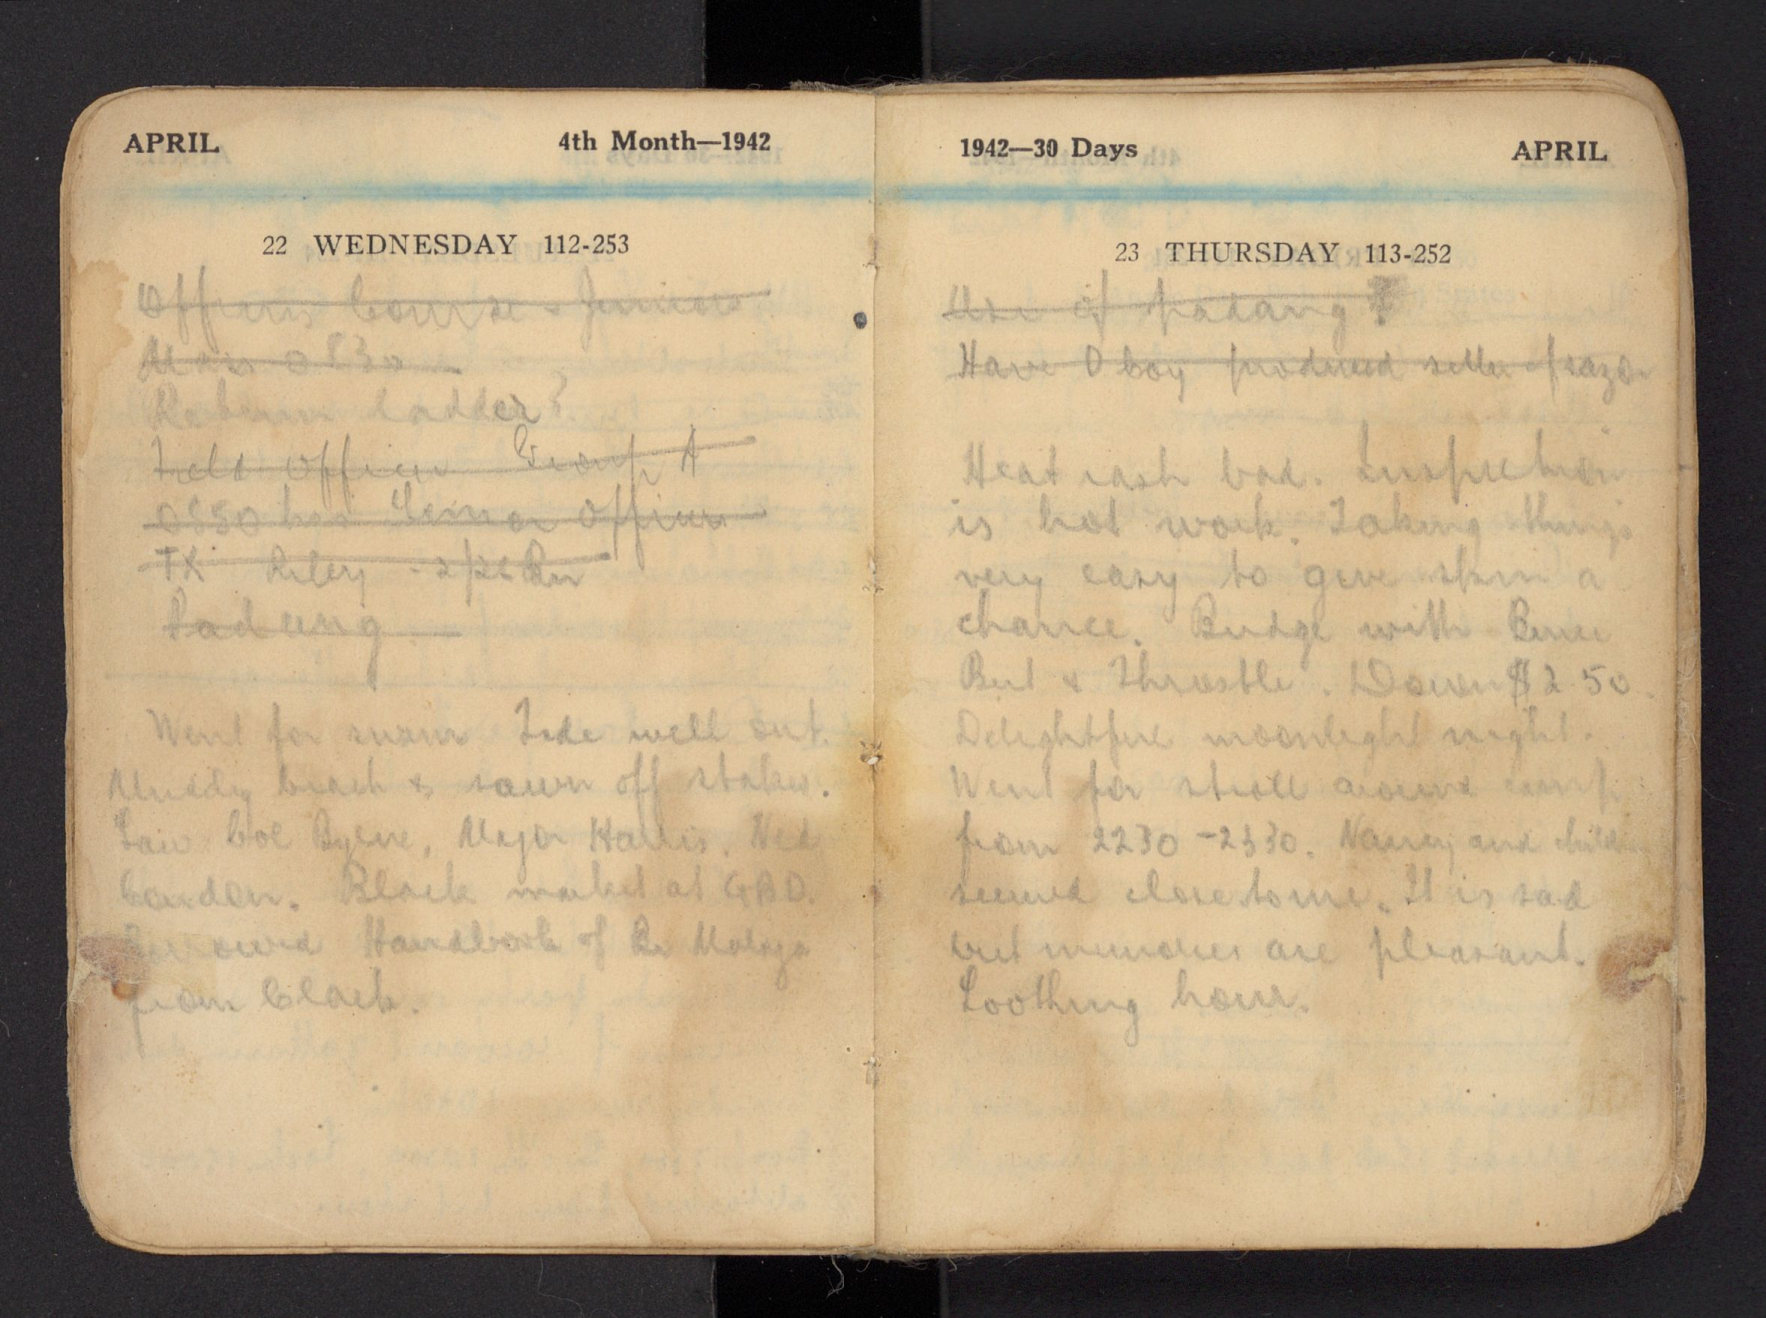 APRIL 4th Month—1942
22 WEDNESDAY 112-253
Officers Course - Juniors
0830
Return ladder?
Field Officer Group A
0850 hrs Senior Officers
TX Riley - 2/26 Bn
Padang
Went for swim Tide well out.
Muddy beach & sawn off stakes.
Saw Col Byrne, Major Harris, Ned
Conden. Black market at GBD.
Borrowed Handbook of Br Malaya
from Clark.
1942—30 Days APRIL
23 THURSDAY 113-252
Use of padang?
Have O boy produced
Heat rash bad. Inspection
is hot work. Taking things
very easy to give skin a
chance. Bridge with Bruce
Bert & Throstle. Down $2.50.
Delightful moonlight night.
Went for stroll around camp
from 2230 - 2330. Nancy and children
seemed close to me. It is sad
but memories are pleasant.
Soothing hour.